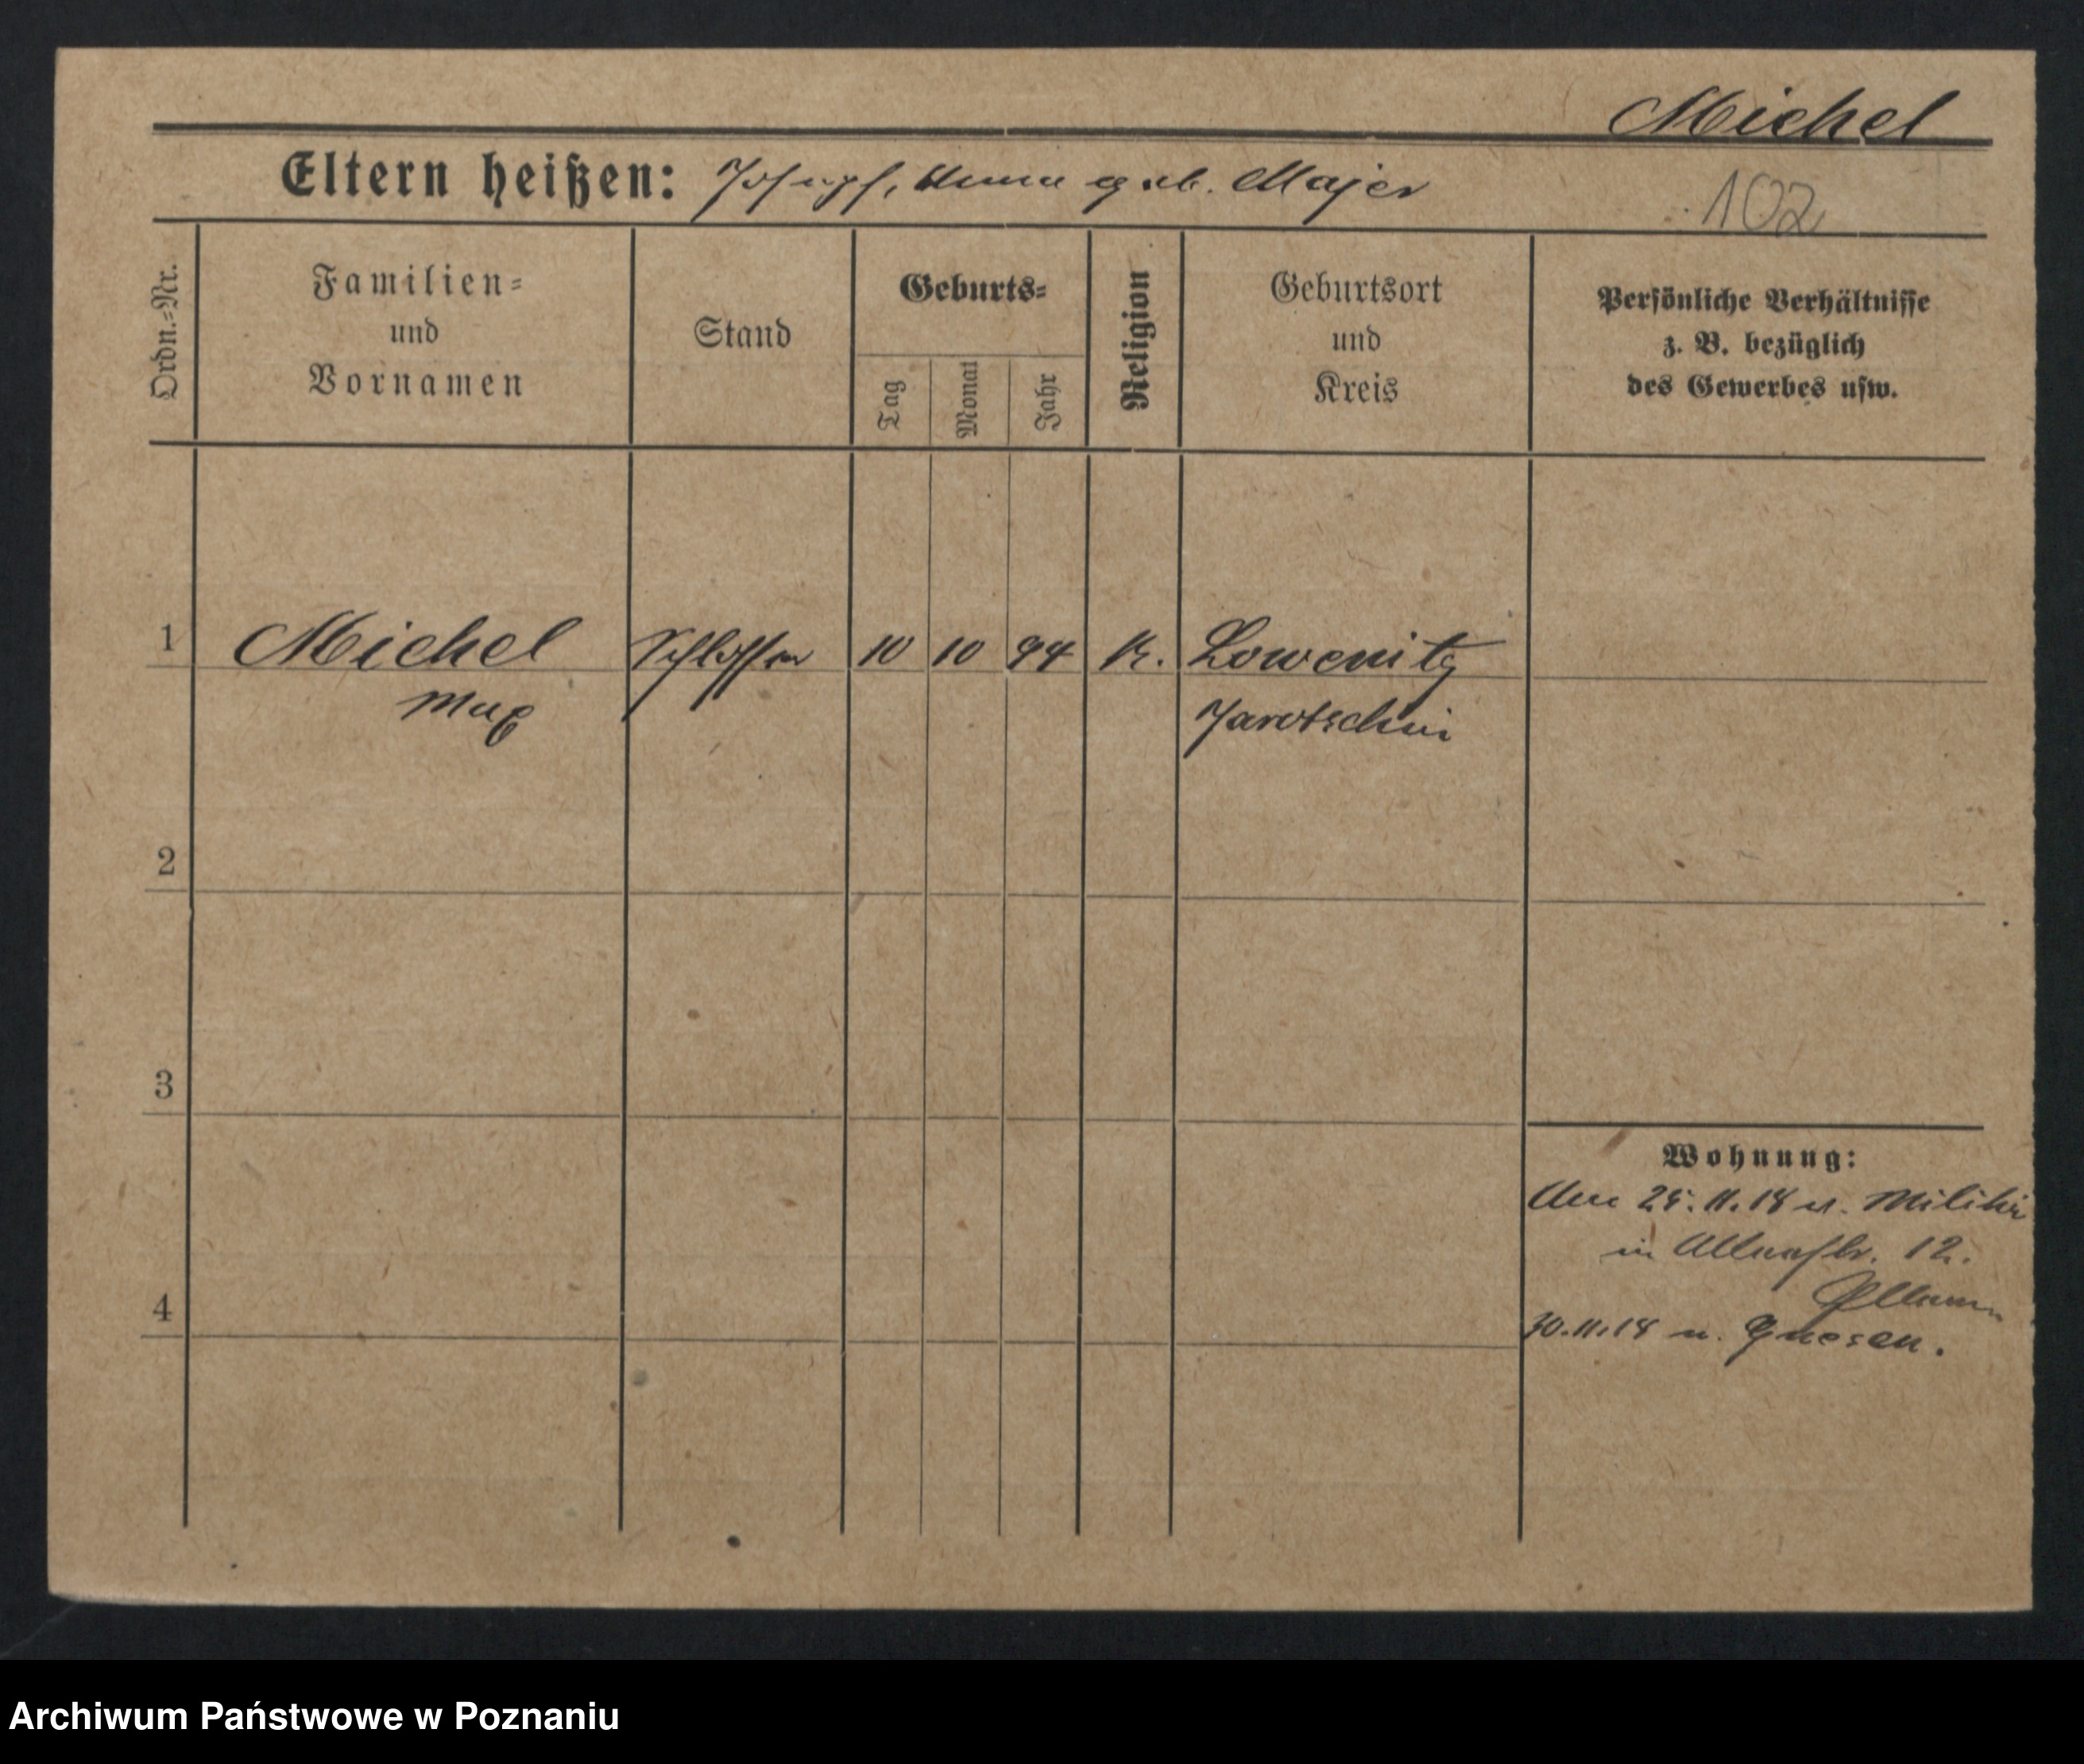 Michel
Eltern heißen: Joseph, Anna geb. Majer
102
Ordn.-Nr.
Familien-
und
Vornamen
Stand
Geburts-
Tag
Monat
Jahr
Religion
Geburtsort
und
Kreis
Persönliche Verhältnisse
z. B. bezüglich
des Gewerbes usw.
1 Michel Schlosser 10 10 94 K. Lowenitz
Max Jarotschin
2
3
Wohnung:
25.11.18 v. Militär
in 12.
4
30.11.18 n. Gnesen.
Archiwum Państwowe w Poznaniu